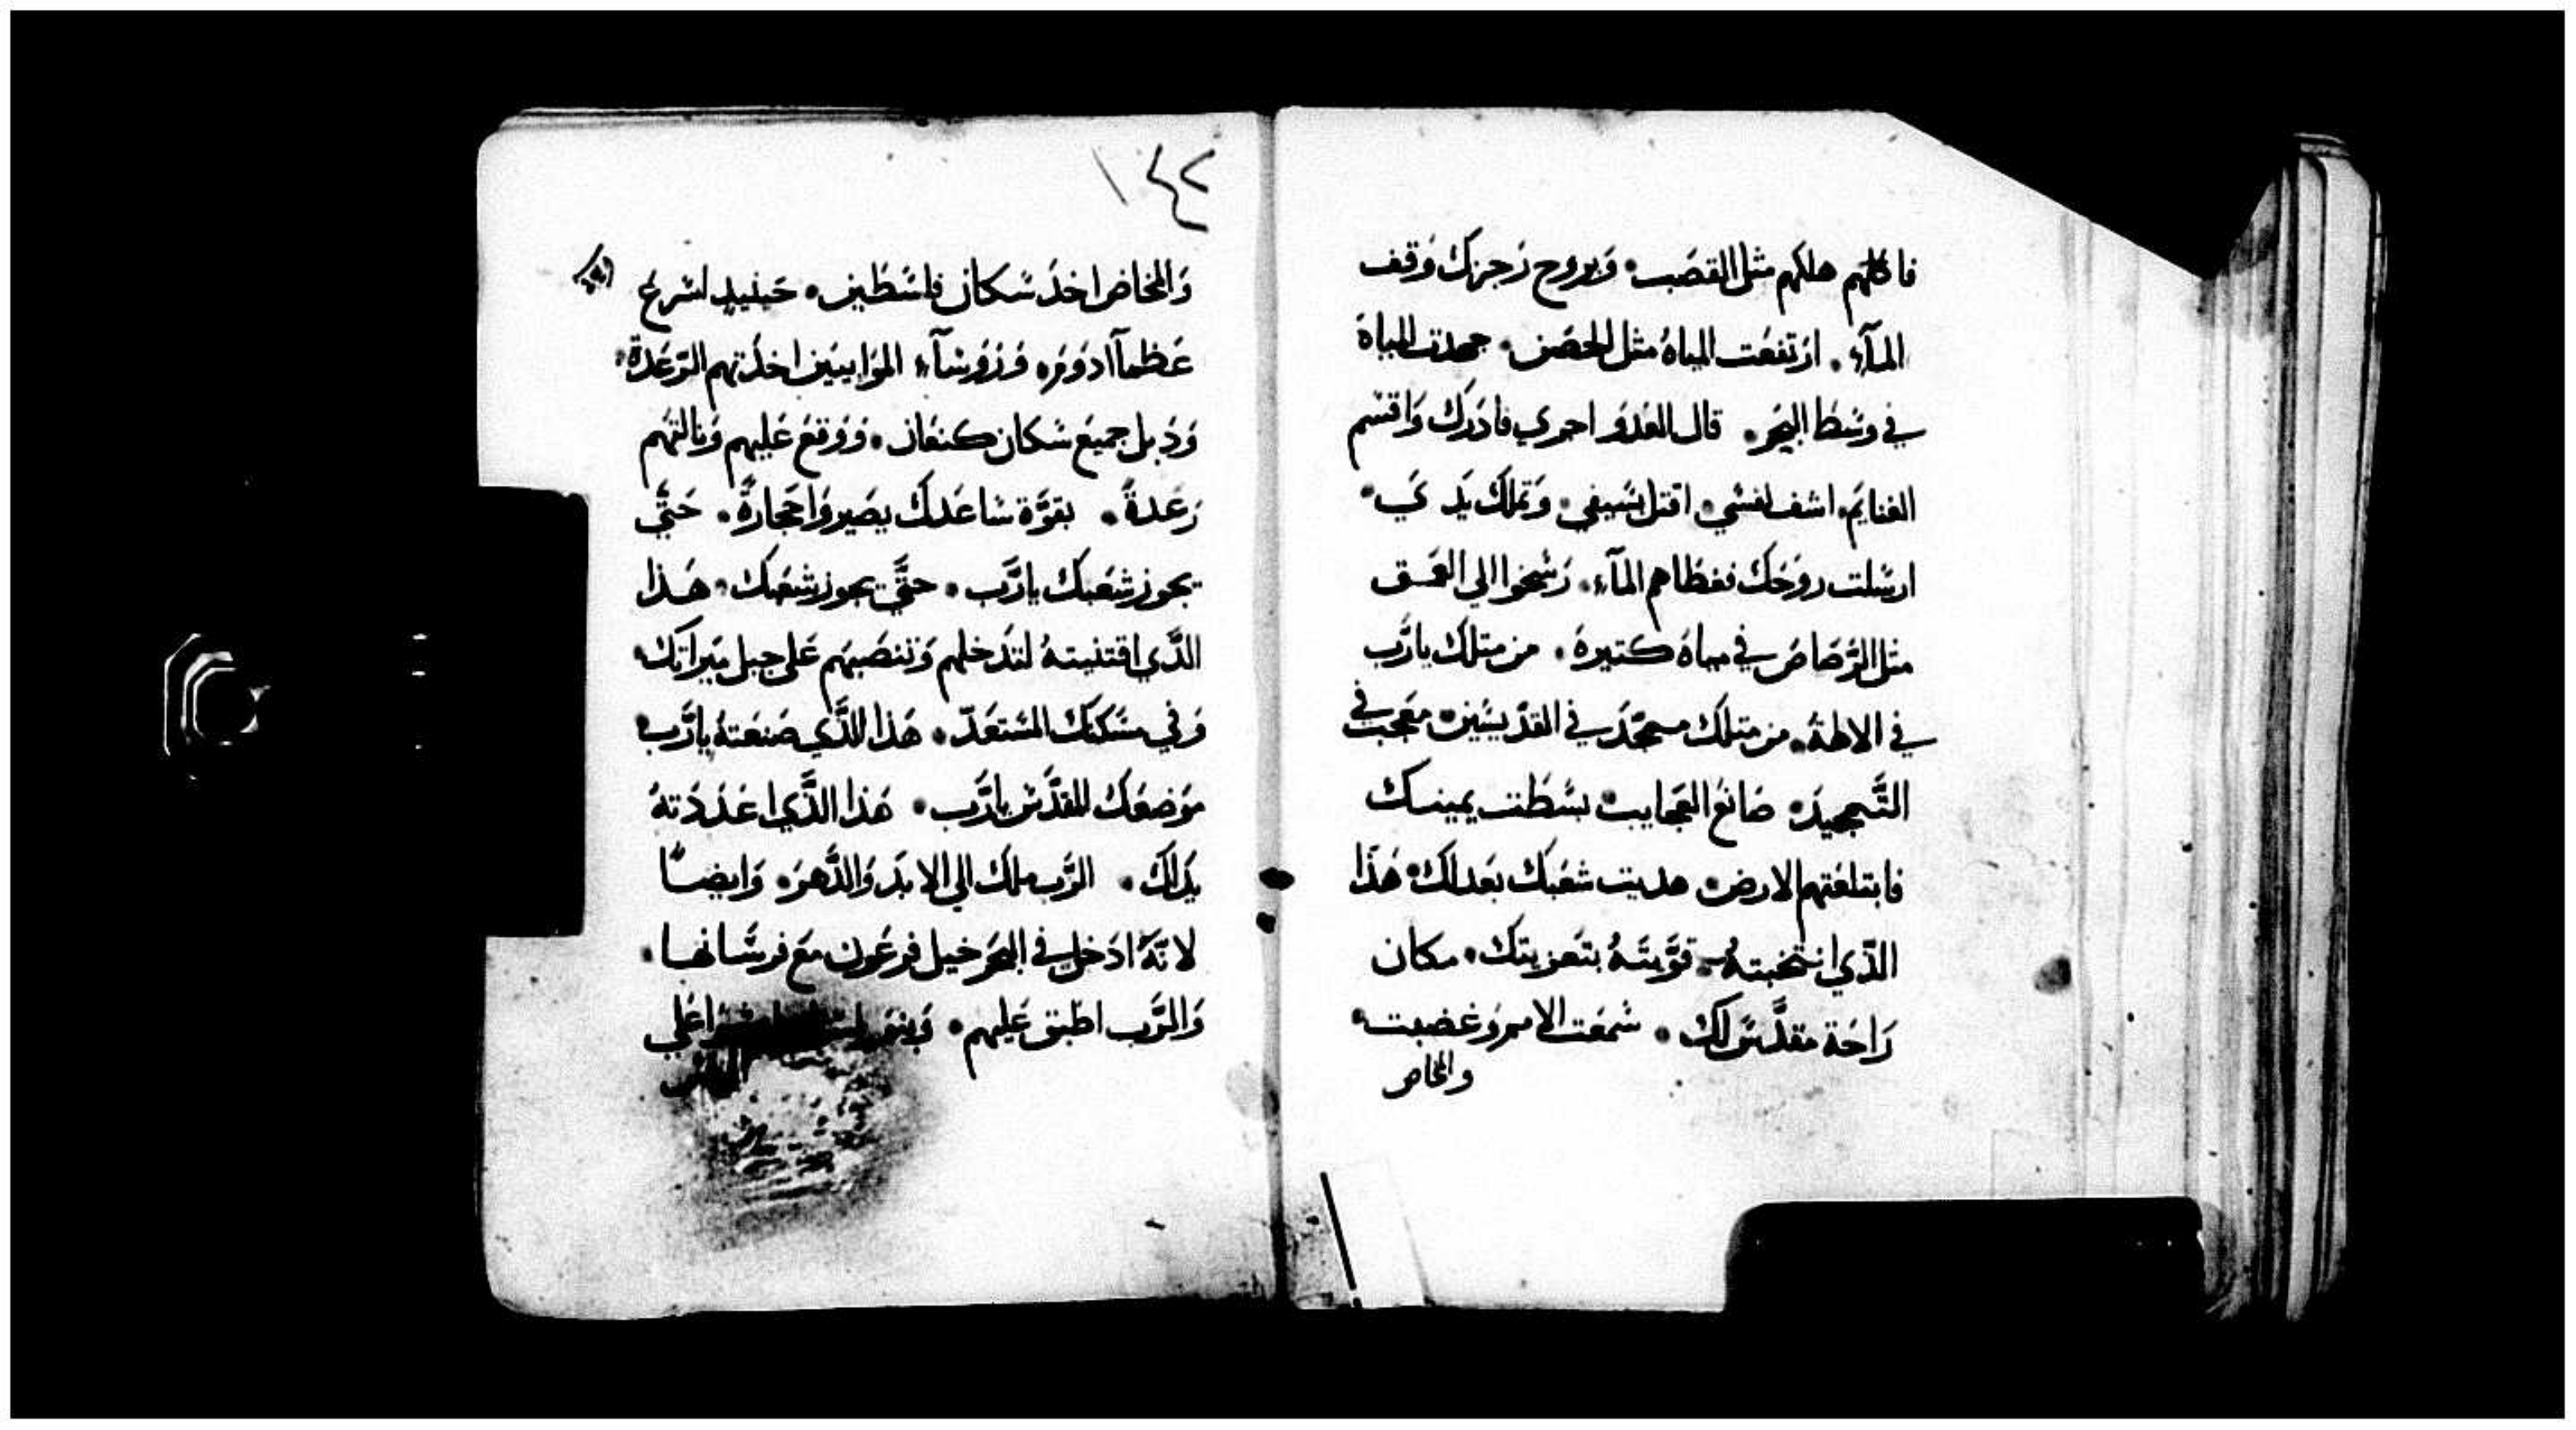 فاكلهم هلكهم مثل القصب • وَبروح رَجزك وَقف
المآء • ارتفعَت المياهُ مثل الحصن • جمدت المياهَ
في وسَط البحَر • قال العَدوَ اجري فادرَك وَاقسم
الغنايَم • اشف نفسَي • اقتل بسَيفي • وَتملك يَدَي •
ارسَلت روحَك فغطاهم المآء • رَسَخوا الي العَمق
مثل الرَصَاصَ في مياهَ كتيرةَ • من متلكَ يارَّب
في الالهةَ • من متلك مسجّدَ في القدّيسَين • معَجبَ في
التَّسجيدَ • صَانعَ العجَايب • بسَطت يمينك
فابتلعَتهم الارض • هديت شعَبك بعَدلك • هَذا
الذّي انتخبتهُ • قوَّيتَهُ بتعَزيتك • مكان
رَاحَة مقدَّسَ لك • سَمعَت الامم وَغضبت •
والمخاض
١٤٢
وَالمخاض اخذَ سَكان فلسَطين • حَينيدٍ اسَرعَ
عَظمآ ادوَمَ • وَرَوَسَآء الموَابيَين اخذَتهم الرّعَدةَ •
وَذَبل جميعَ سَكان كنعَان • وَوَقعَ عَليهم وَنالتهَم
رَعَدةَ • بقوَّة سَاعَدك يصَيروَا حَجارةً • حَتَّي
يجوز شعَبك يارَّب • حتَّي يجوز شعَبك • هَذا
الذَّي اقتنيتهُ لتدَخلهم وَتنصَبهَم عَلي جبل ميَراتك •
وَفي مسَكنك المسَتعَدّ • هَذا الذَّي صَنعَتهُ يارَّب •
موَضعَك المقدَّسَ يارَّب • هَذا الذَّي اعَدَدَتهُ
يدَاك • الرَّب ملك الي الابدَ وَالدَّهرَ • وَايضاً
لانَّهَ ادَخل في البحَر خيل فرعَون معَ فرسَانها •
وَالرَّب اطبق عَليهم • عَلي